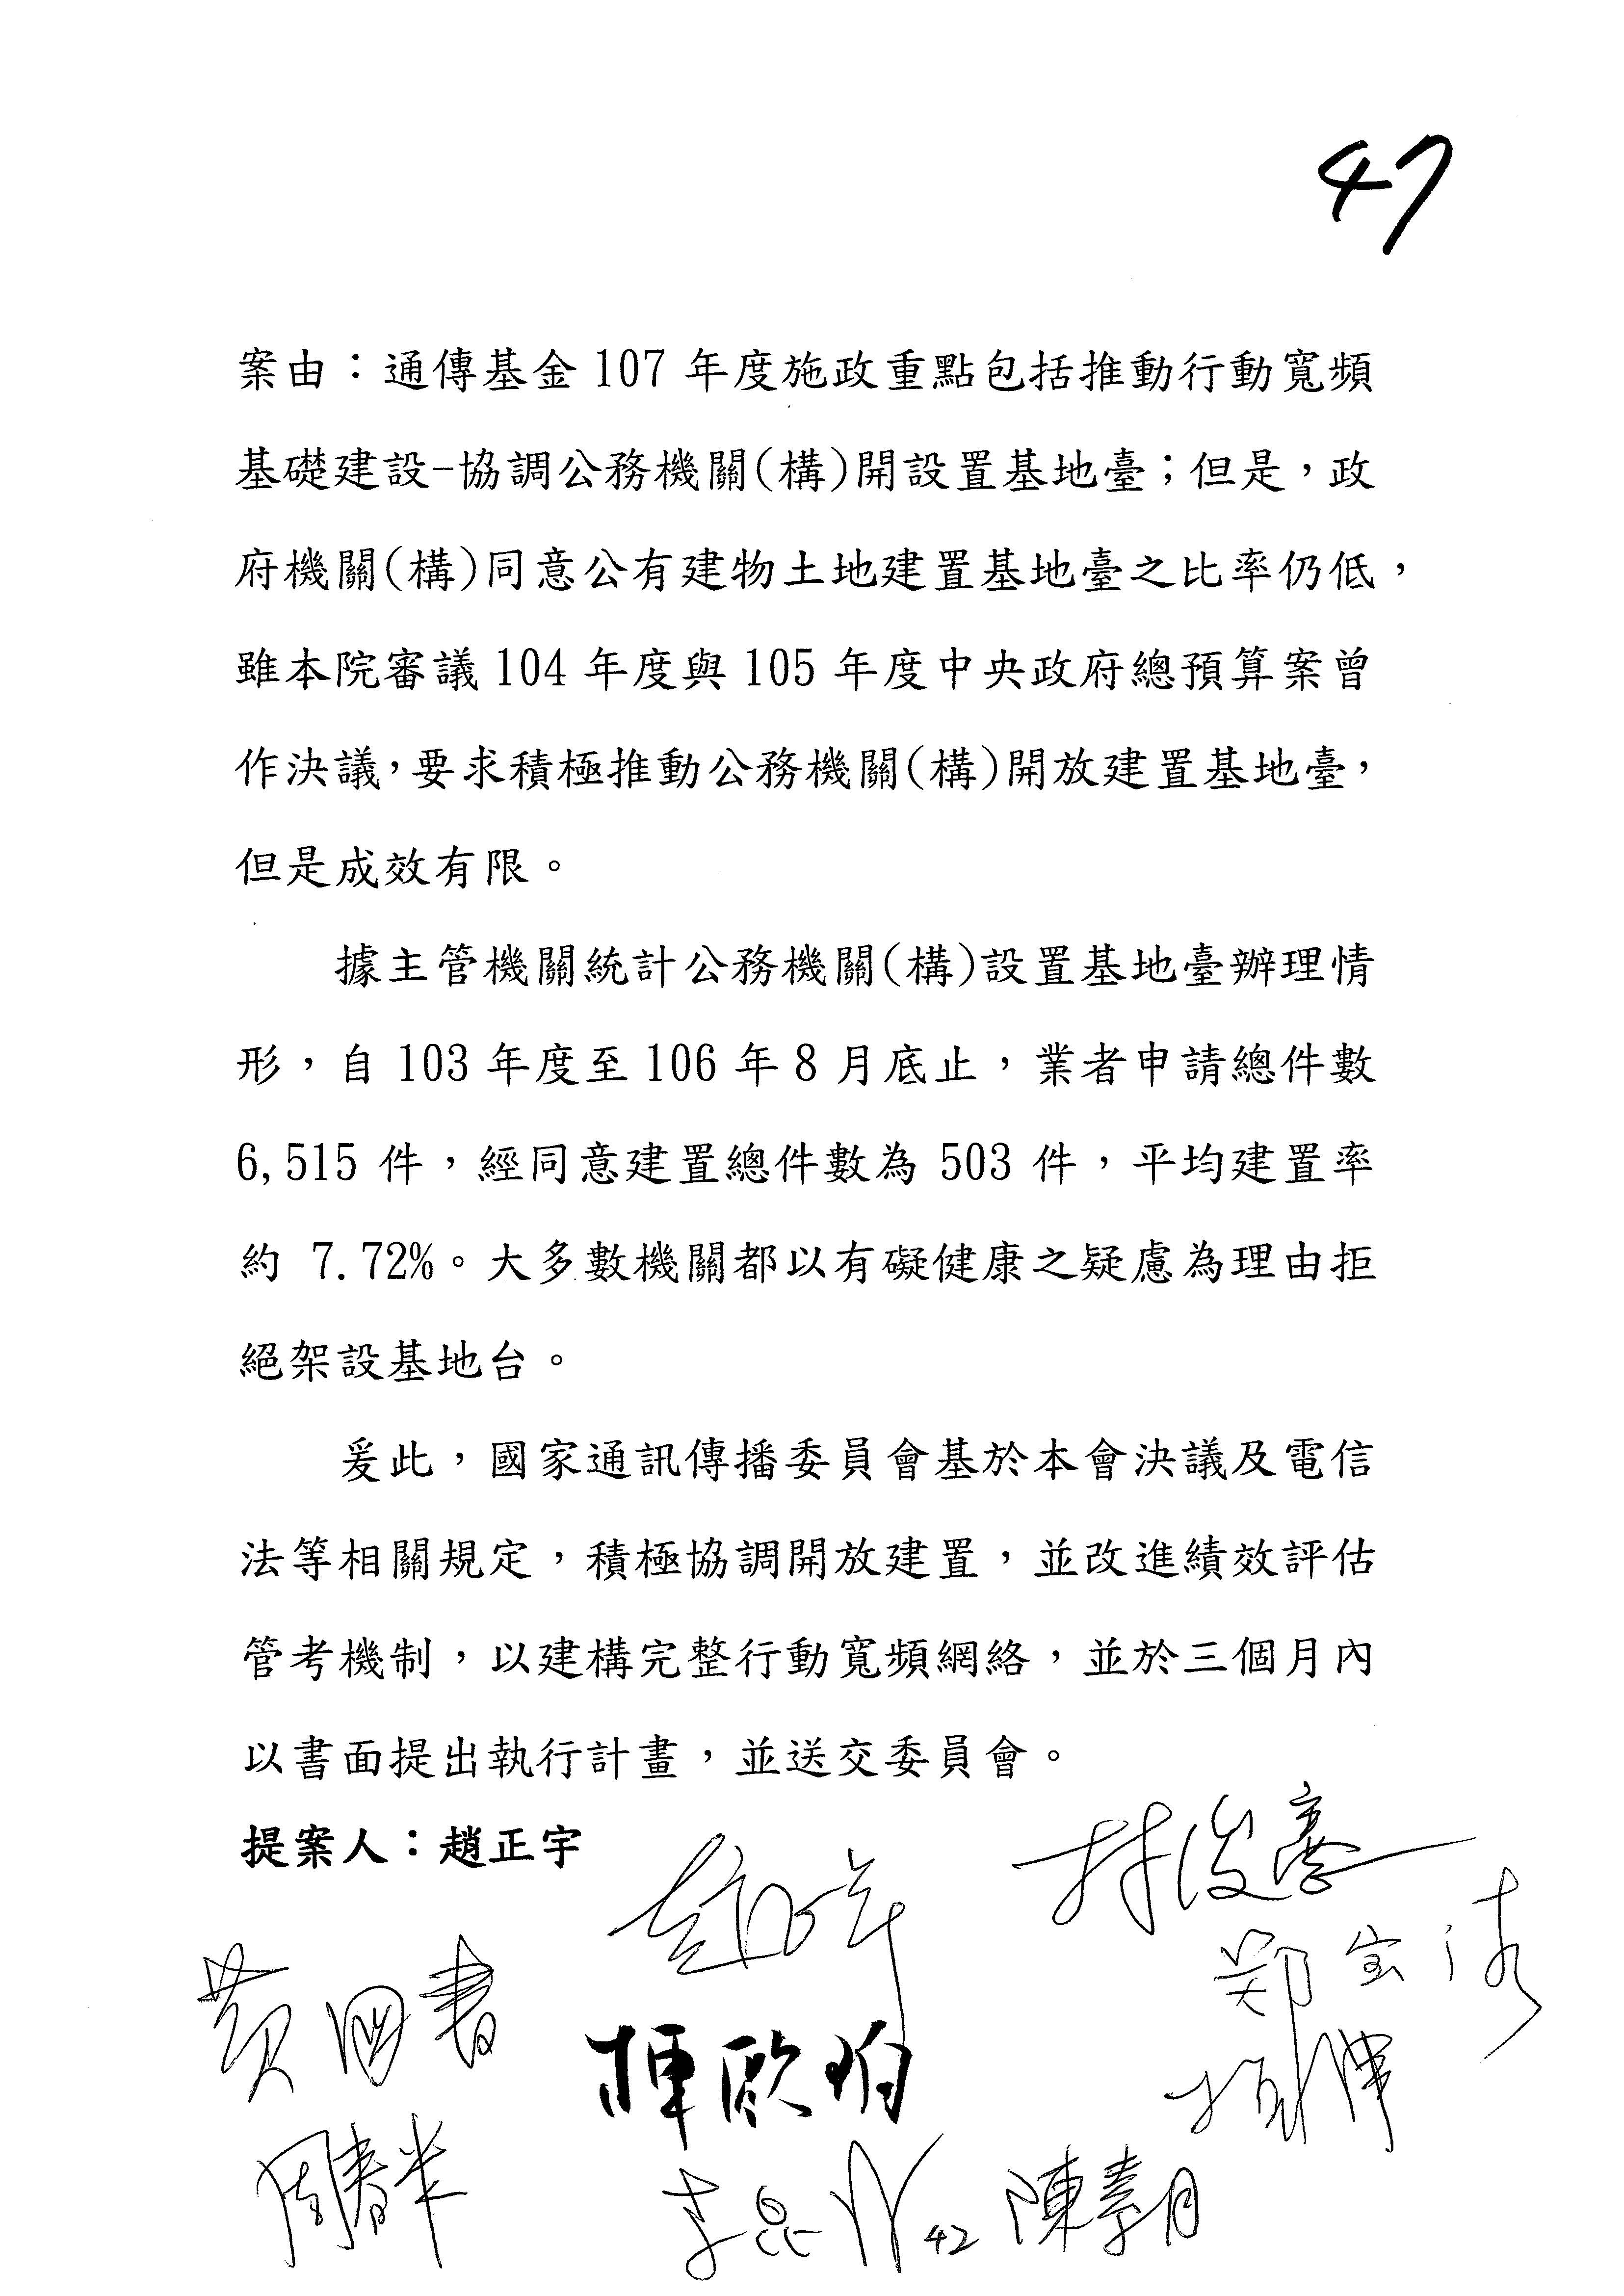 47
案由：通傳基金 107 年度施政重點包括推動行動寬頻
基礎建設-協調公務機關(構)開設置基地臺；但是，政
府機關(構)同意公有建物土地建置基地臺之比率仍低，
雖本院審議 104 年度與 105 年度中央政府總預算案曾
作決議，要求積極推動公務機關(構)開放建置基地臺，
但是成效有限。
據主管機關統計公務機關(構)設置基地臺辦理情
形，自 103 年度至 106 年 8 月底止，業者申請總件數
6,515 件，經同意建置總件數為 503 件，平均建置率
約 7.72%。大多數機關都以有礙健康之疑慮為理由拒
絕架設基地台。
爰此，國家通訊傳播委員會基於本會決議及電信
法等相關規定，積極協調開放建置，並改進績效評估
管考機制，以建構完整行動寬頻網絡，並於三個月內
以書面提出執行計畫，並送交委員會。
提案人：趙正宇
趙正宇
林俊憲
鄭宝清
黃國書
陳歐珀
周春米
李昆澤
42
陳素月